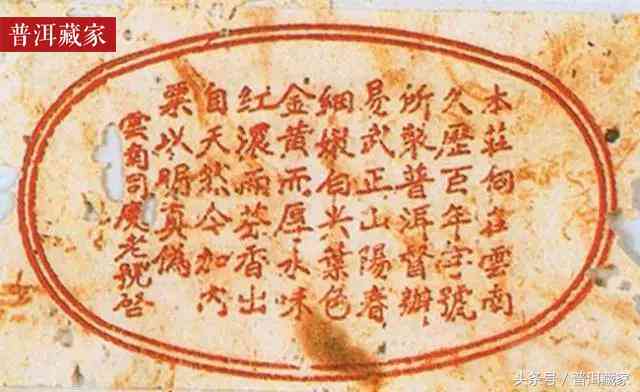 普洱藏家
本莊向在雲南
久歷百年字號
所製普洱督辦
易武正山陽春
細嫩白尖葉色
金黃而厚水味
紅濃而芬香出
自天然今加內
票以明真偽
雲南同慶老號启
头条号 / 普洱藏家